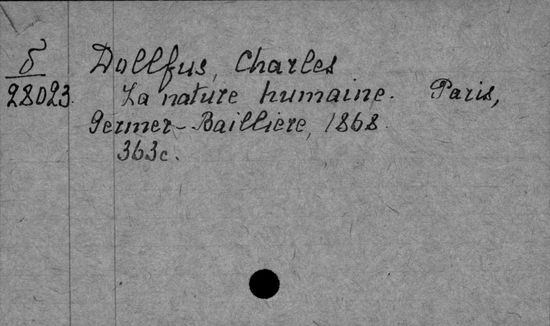 δ Dollfus, Charles
28023 La nature humaine. Paris,
Germer-Bailliere, 1868.
363c.